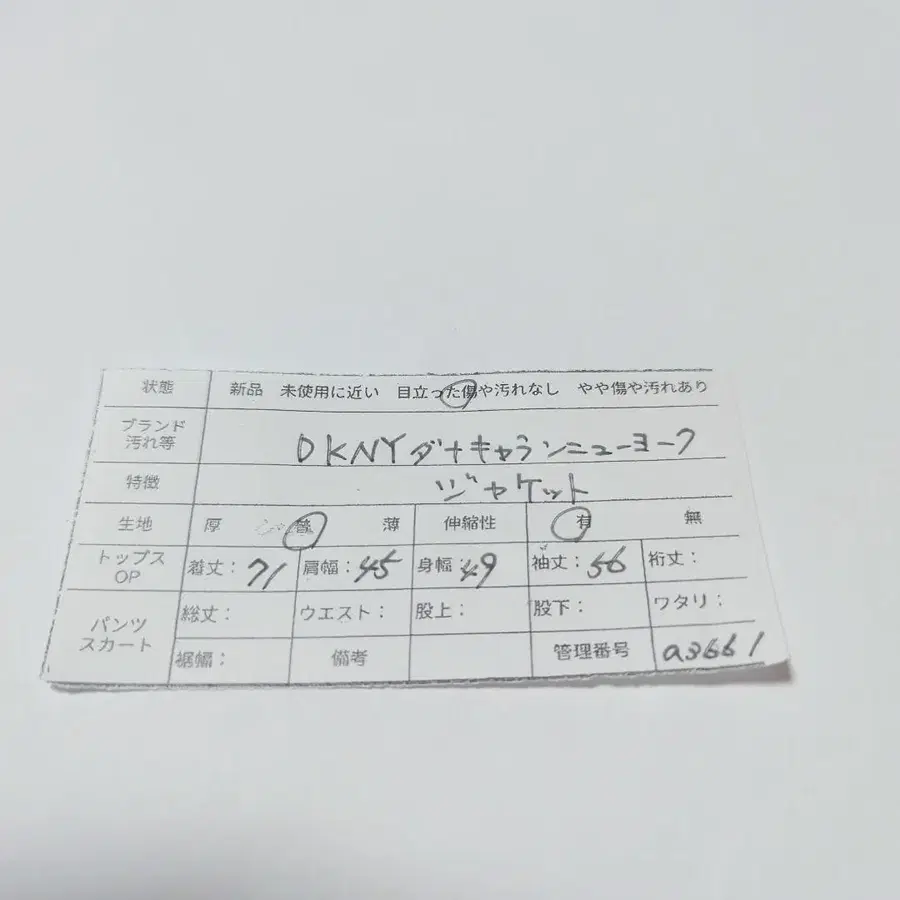 状態 新品 未使用に近い 目立った傷や汚れなし やや傷や汚れあり
ブランド
汚れ等
DKNYダナキャランニューヨーク
特徴 ジャケット
生地 厚 普 薄 伸縮性 有 無
トップス
OP
着丈：71 肩幅：45 身幅：49 袖丈：56 裄丈：
パンツ
スカート
総丈： ウエスト： 股上： 股下： ワタリ：
裾幅： 備考 管理番号 a3661